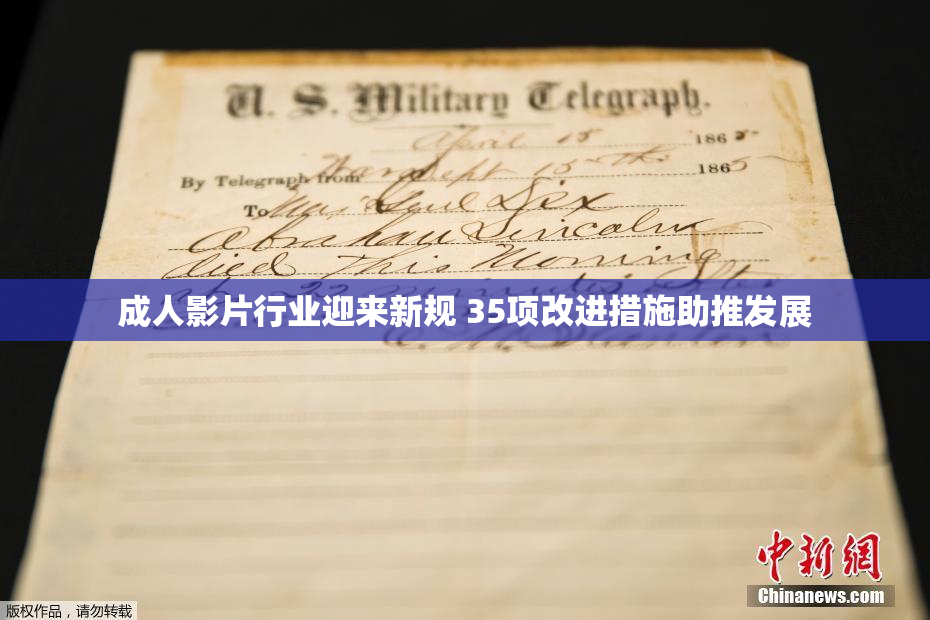 U. S. Military Telegraph.
April 15 1865
By Telegraph from War Dept 15th 1865
To Maj Genl Dix
Abraham Lincoln
died This Morning
at 22 minutes after
成人影片行业迎来新规 35项改进措施助推发展
中新網
Chinanews.com
版权作品，请勿转载